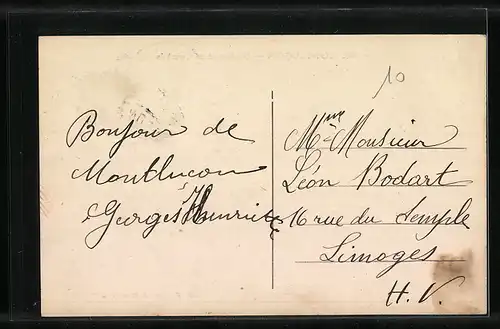 10
Bonjour de
Montluçon
Georges Henriette
Mme Monsieur
Léon Bodart
16 rue du Temple
Limoges
H. V.